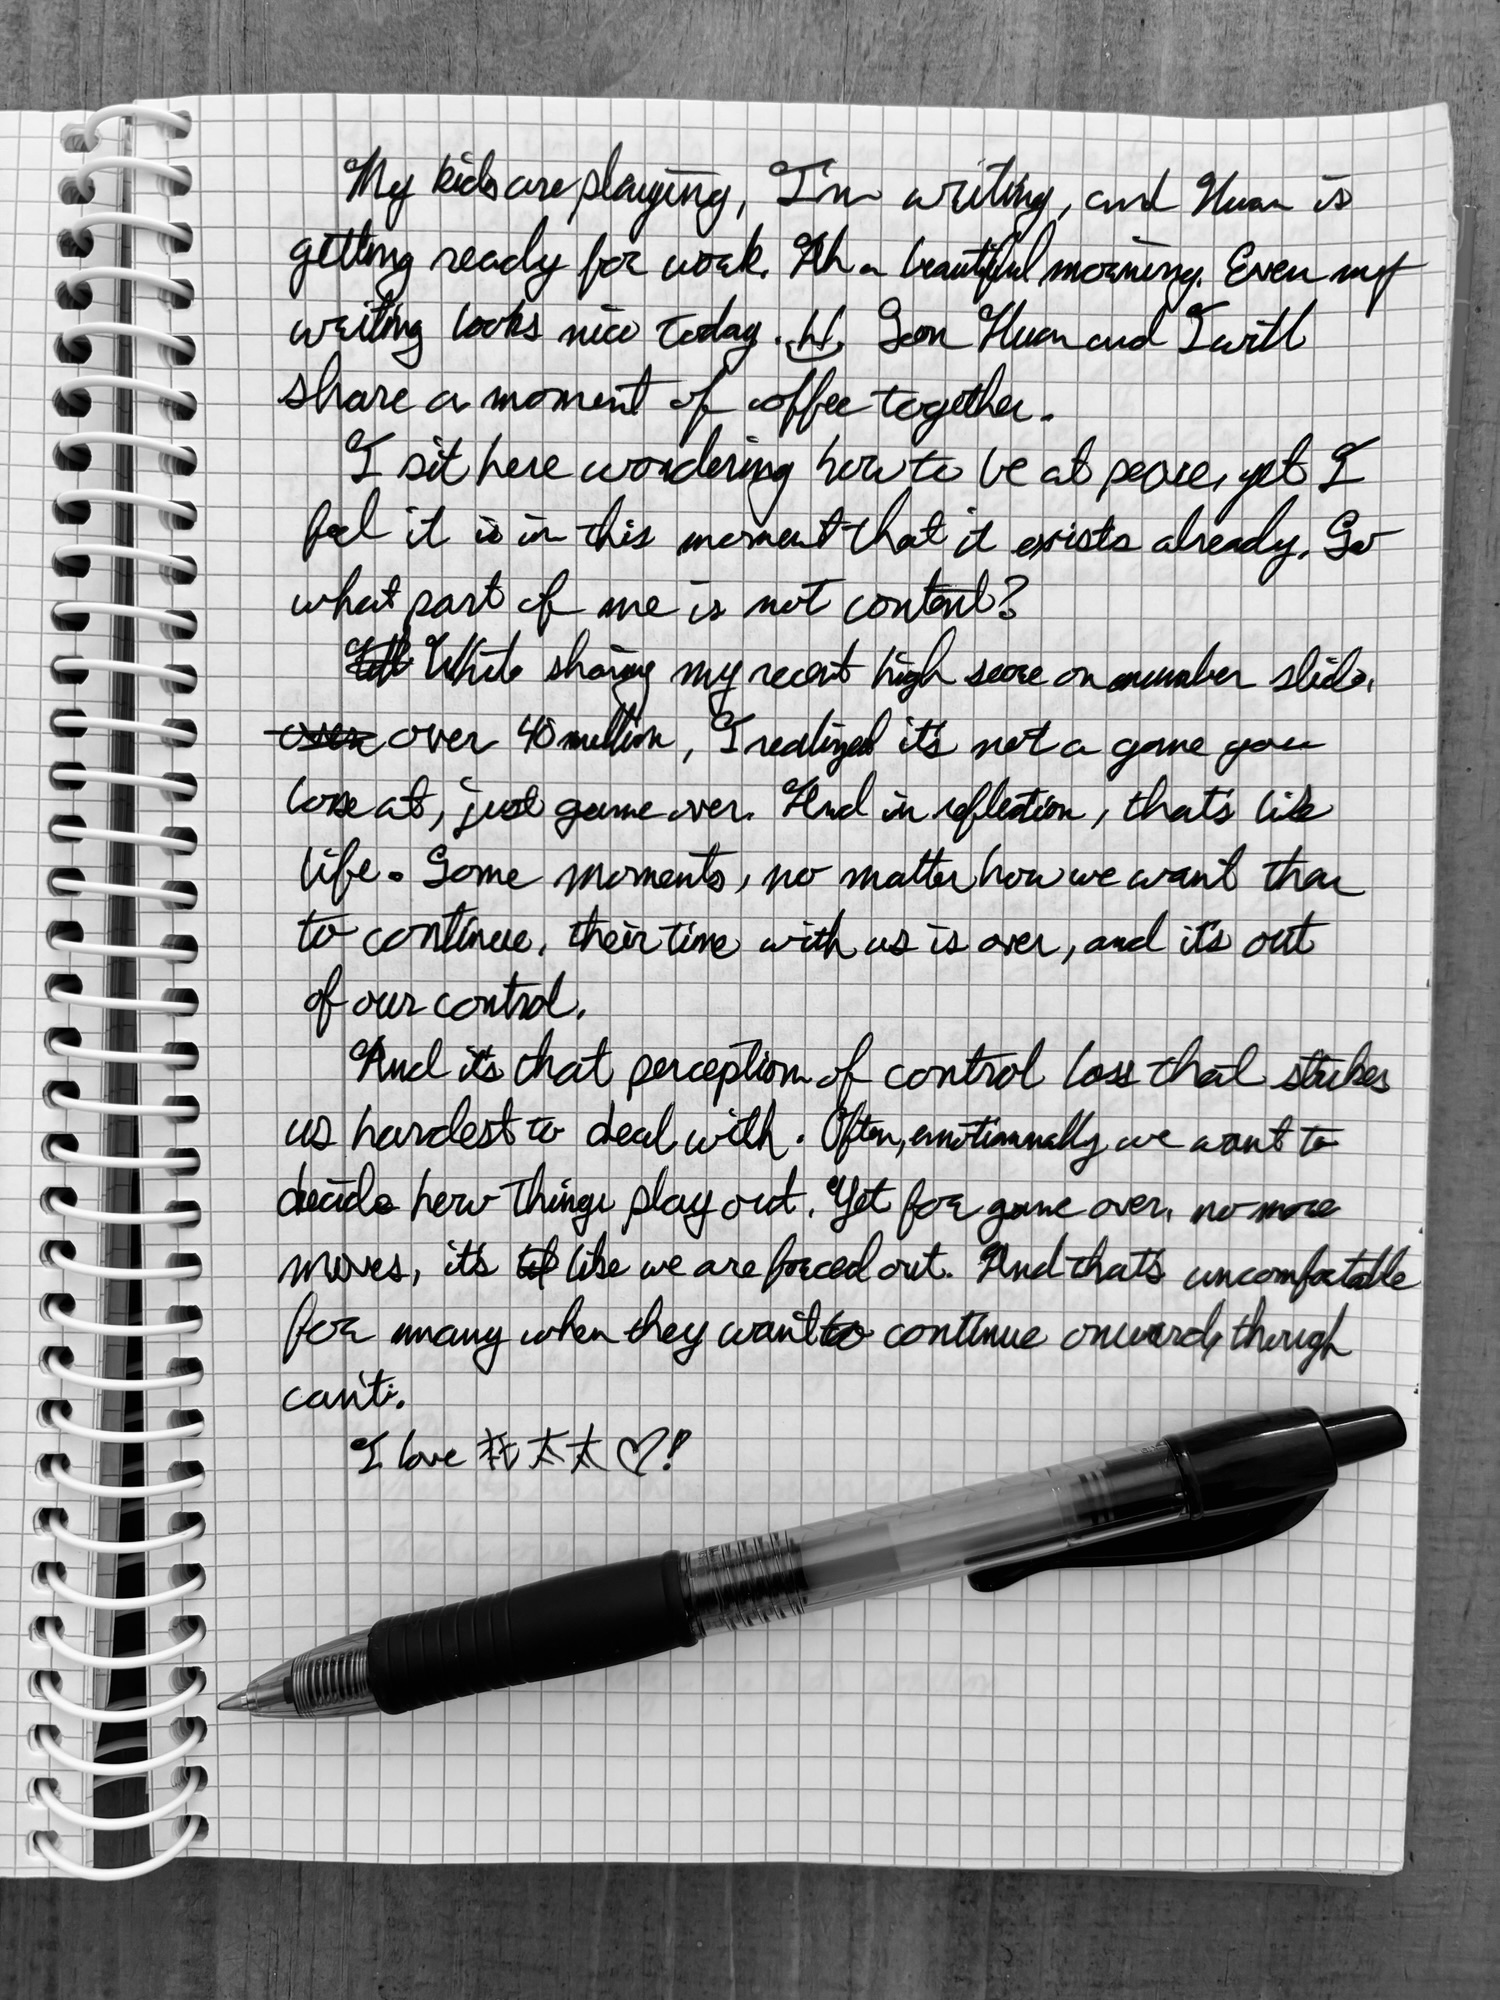 My kids are playing, I'm writing, and Huan is
getting ready for work. Ah a beautiful morning. Even my
writing looks nice today. Soon Huan and I will
share a moment of coffee together.
I sit here wondering how to be at peace, yet I
feel it is in this moment that it exists already. So
what part of me is not content?
While sharing my recent high score on number slide,
over over 40 million, I realized it's not a game you
lose at, just game over. And in reflection, that's like
life. Some moments, no matter how we want them
to continue, their time with us is over, and it's out
of our control.
And it's that perception of control loss that strikes
us hardest to deal with. Often, emotionally we want to
decide how things play out. Yet for game over, no more
moves, it's like we are forced out. And that's uncomfortable
for many when they want to continue onward, though
can't.
I love 太太♡!